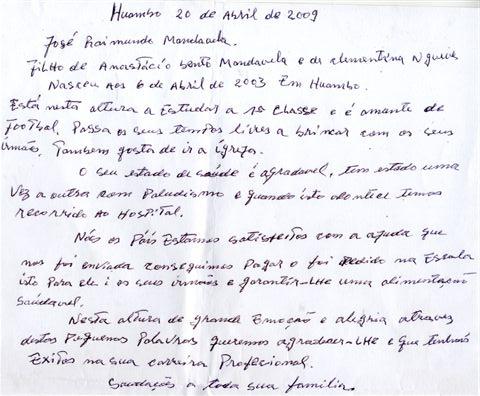 Huambo 20 de Abril de 2009
José Raimundo Mandavela.
Filho de Anastácio Bento Mandavela e de clementina Nguevé
Nasceu aos 6 de Abril de 2003 Em Huambo.
Está nesta altura a Estudar a 1ª Classe e é amante de
Footbal, Passa os seus tempos livres a brincar com os seus
irmãos, Tambem gosta de ir a igreja.
O seu estado de saúde é agradavel, tem estado uma
Vez a outra com Paludismo e quando isto acontece temos
recorrido ao Hospital.
Nós os Páis Estamos satisfeitos com a ajuda que
nos foi enviada conseguimos Pagar o foi Pedido na Escola
isto Para ele i os seus irmãos e garantir-LHe uma alimentação
saúdavel.
Nesta altura de grande Emoção e alegria atravez
destas Pequenas Palavras queremos agradecer-LHe e que tenha
Exitos na sua carreira Profecional.
Saudações a toda sua familia.